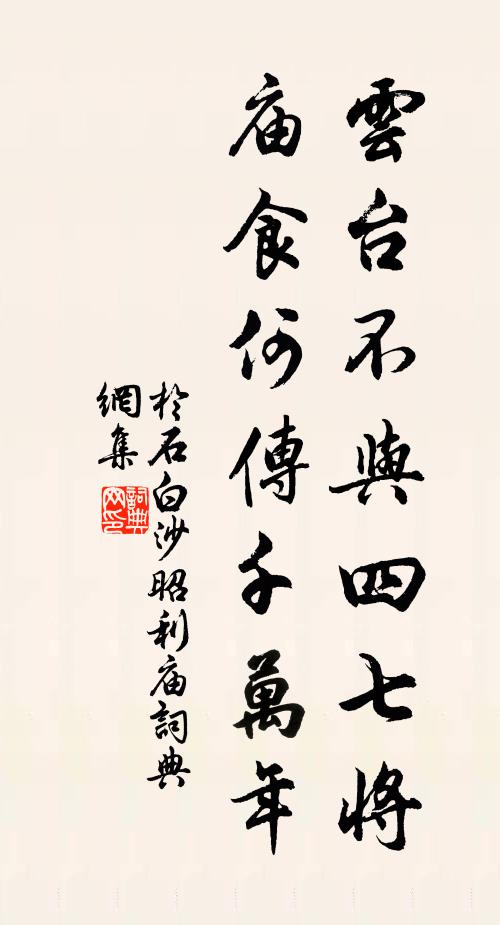 雲台不與四七將
庙食何傳千萬年
於石白沙昭利庙詞典
網集
詞典
网印